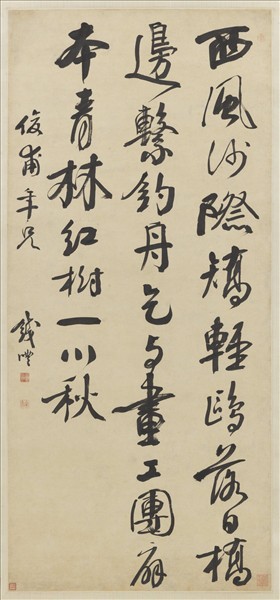 西風沙際矯輕鷗落日橋
邊繫釣舟乞与畫工團扇
本青林紅樹一川秋
俊甫年兄